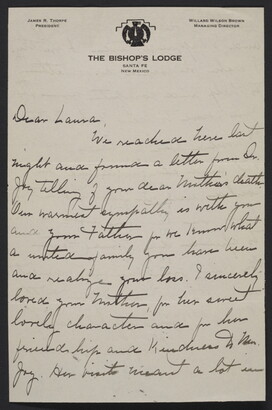 JAMES R. THORPE
PRESIDENT
WILLARD WILSON BROWN
MANAGING DIRECTOR
THE BISHOP'S LODGE
SANTA FE
NEW MEXICO
Dear Laura,
We reached here last
night and found a letter from Dr.
Joy telling of your dear Mother's death
Our warmest sympathy is with you
and your Father for we know what
a united family you have been
and realize your loss. I sincerely
loved your Mother, for her sweet
lovely character and for her
friendship and kindness to Mrs.
Joy. Her visits meant a lot in